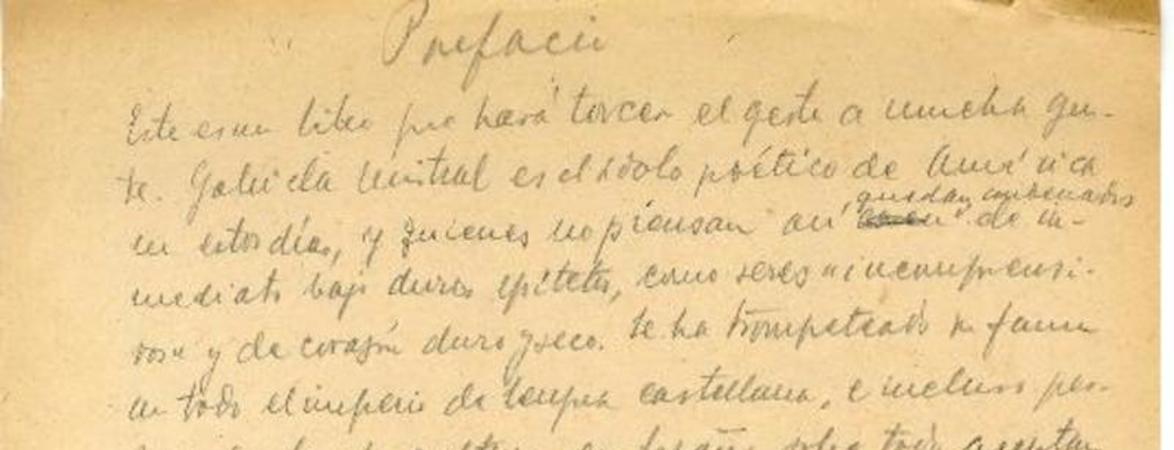 Prefacio
Este es un libro que hará torcer el gesto a mucha gen-
te. Gabriela Mistral es el ídolo poético de América
en estos días, y quienes no piensan así, quedan condenados de in-
mediato bajo duros epítetos, como seres "incomprensi-
vos" y de corazón duro y seco. Se ha trompeteado su fama
en todo el imperio de lengua castellana, e incluso per-
España, sobre todo, aceptan